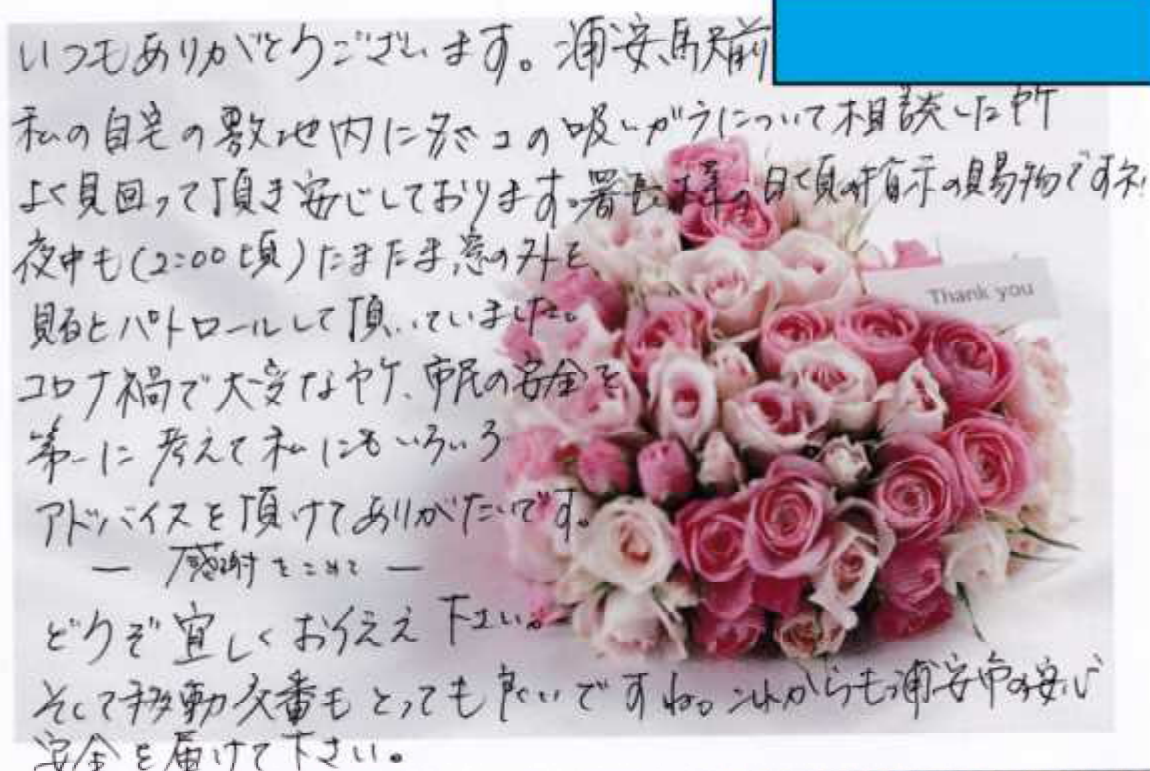 いつもありがとうございます。浦安駅前
私の自宅の敷地内にタバコの吸いがらについて相談した所
よく見回って頂き安心しております。署長様の日頃の指示の賜物ですネ!
夜中も(2:00頃)たまたま窓の外を
見るとパトロールして頂いていました。
コロナ禍で大変な中、市民の安全を
第一に考えて私にもいろいろ
アドバイスを頂けてありがたいです。
― 感謝をこめて ―
どうぞ宜しくお伝え下さい。
そして移動交番もとっても良いですね。これからも浦安市の安心
安全を届けて下さい。
Thank you